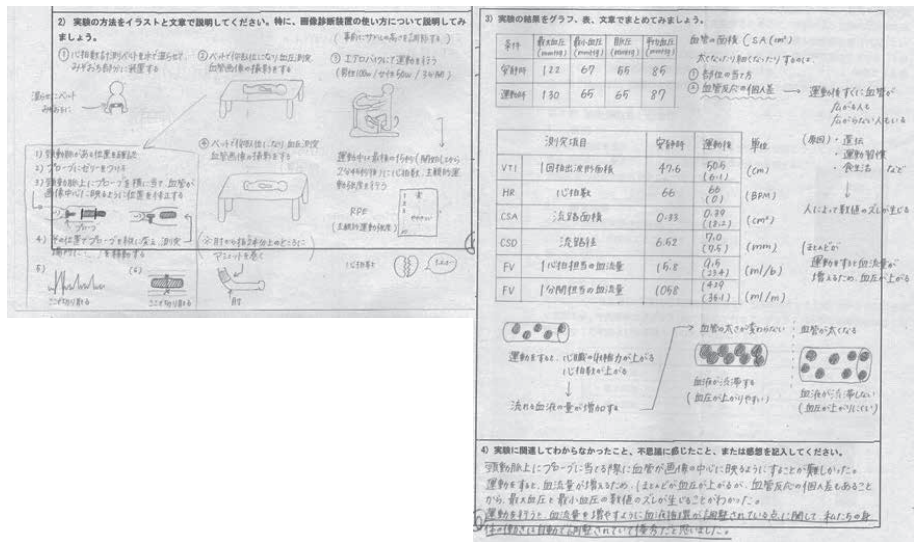 2) 実験の方法をイラストと文章で説明してください。特に、画像診断装置の使い方について説明してみましょう。
(事前にサドルの高さを調節する)
① 心拍数計測ベルトを水で濡らせて、
みぞおち部分に装着する
② ベッドで仰臥位になり血圧測定
血管画像の撮影をする
③ エアロバイクにて運動を行う
(男性100w/女性50w/3分間)
濡らしたベルト
みぞおちに
④ ベッドで仰臥位になり血圧測定
血管画像の撮影をする
運動中に最後の15秒(開始してから
2分45秒後)に心拍数、主観的運
動強度を行う
RPE
(主観的運動強度)
心拍数
1) 頸動脈がある位置を確認
2) プローブにゼリーをつける
3) 頸動脈上にプローブを横に当て、血管が
画像中心に映るように位置を修正する
プローブ
4) その位置でプローブを縦に変え、測定
5)
6)
ここを切り取る
ここを切り取る
肘
3) 実験の結果をグラフ、表、文章でまとめてみましょう。
条件 最大血圧(mmHg) 最小血圧(mmHg) 脈圧(mmHg) 平均血圧(mmHg)
安静時 122 67 55 85
運動時 130 65 65 87
血管の面積 (CSA(cm²)
太くなったり細くなったりするのは、
① 部位の当て方
② 血管反応の個人差
運動後すぐに血管が
広がる人も
広がらない人もいる
(原因)・遺伝
・運動習慣
・食生活 など
人によって数値のズレが生じる
ほとんどが
運動をすると血流量が
増えるため、血圧が上がる
測定項目 安静時 運動後 単位
VTI 1回拍出波形面積 47.6 50.5 (6.1) (cm)
HR 心拍数 66 66 (0) (BPM)
CSA 流路面積 0.33 0.39 (18.2) (cm²)
CSD 流路径 6.52 7.0 (7.5) (mm)
FV 1心拍担当の血流量 15.8 (23.4) (ml/b)
FV 1分間担当の血流量 1058 (ml/m)
運動をすると、心臓の収縮力が上がる
心拍数が上がる
流れる血液の量が増加する
血管の太さが変わらない
血液が渋滞する
(血圧が上がりやすい)
血管が太くなる
血液が渋滞しない
(血圧が上がりにくい)
4) 実験に関連してわからなかったこと、不思議に感じたこと、または感想を記入してください。
頸動脈上にプローブに当てる際に血管が画像の中心に映るようにすることが難しかった。
運動をすると、血流量が増えるため、ほとんどが血圧が上がるが、血管反応の個人差もあること
から、最大血圧と最小血圧の数値のズレが生じることがわかった。
運動を行うと、血流量を増やすように血液循環が調整されている点に関して、私たちの身
体の働きは自動で調整されていて優秀だと思いました。